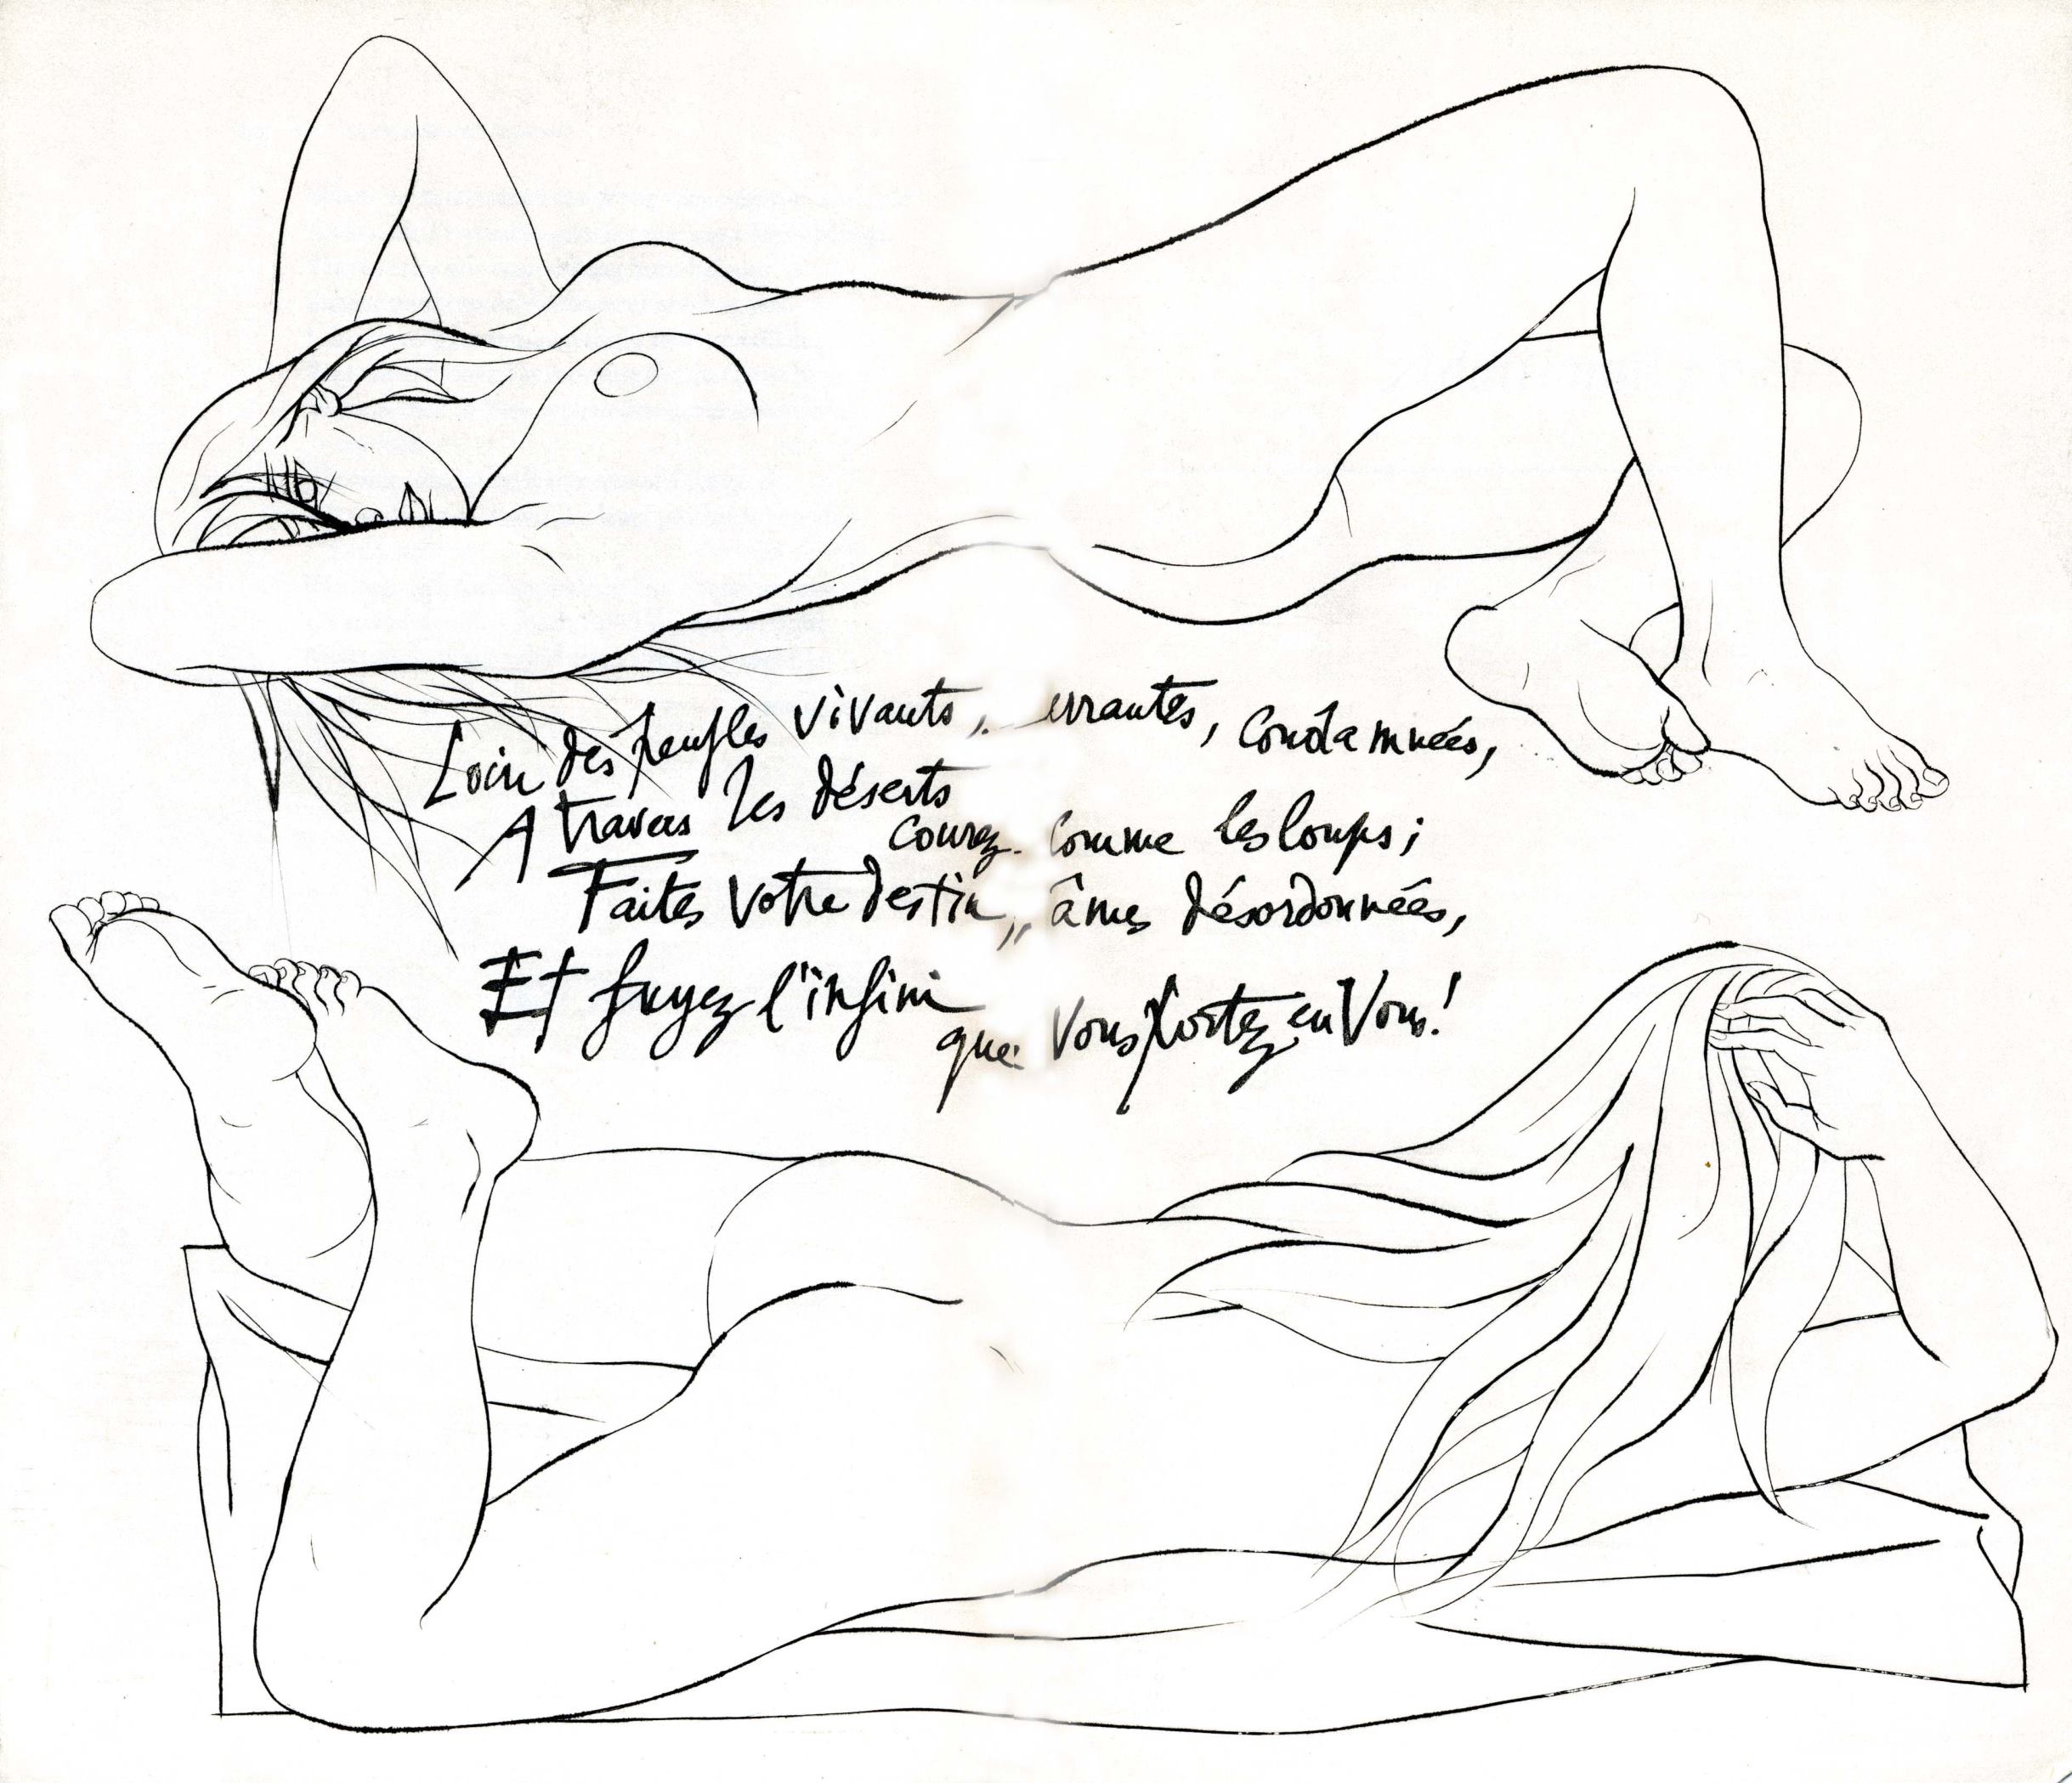 Loin des peuples vivants, errantes, condamnées,
A travers les déserts
courez comme les loups;
Faites votre destin, âmes désordonnées,
Et fuyez l'infini
que vous portez en vous!